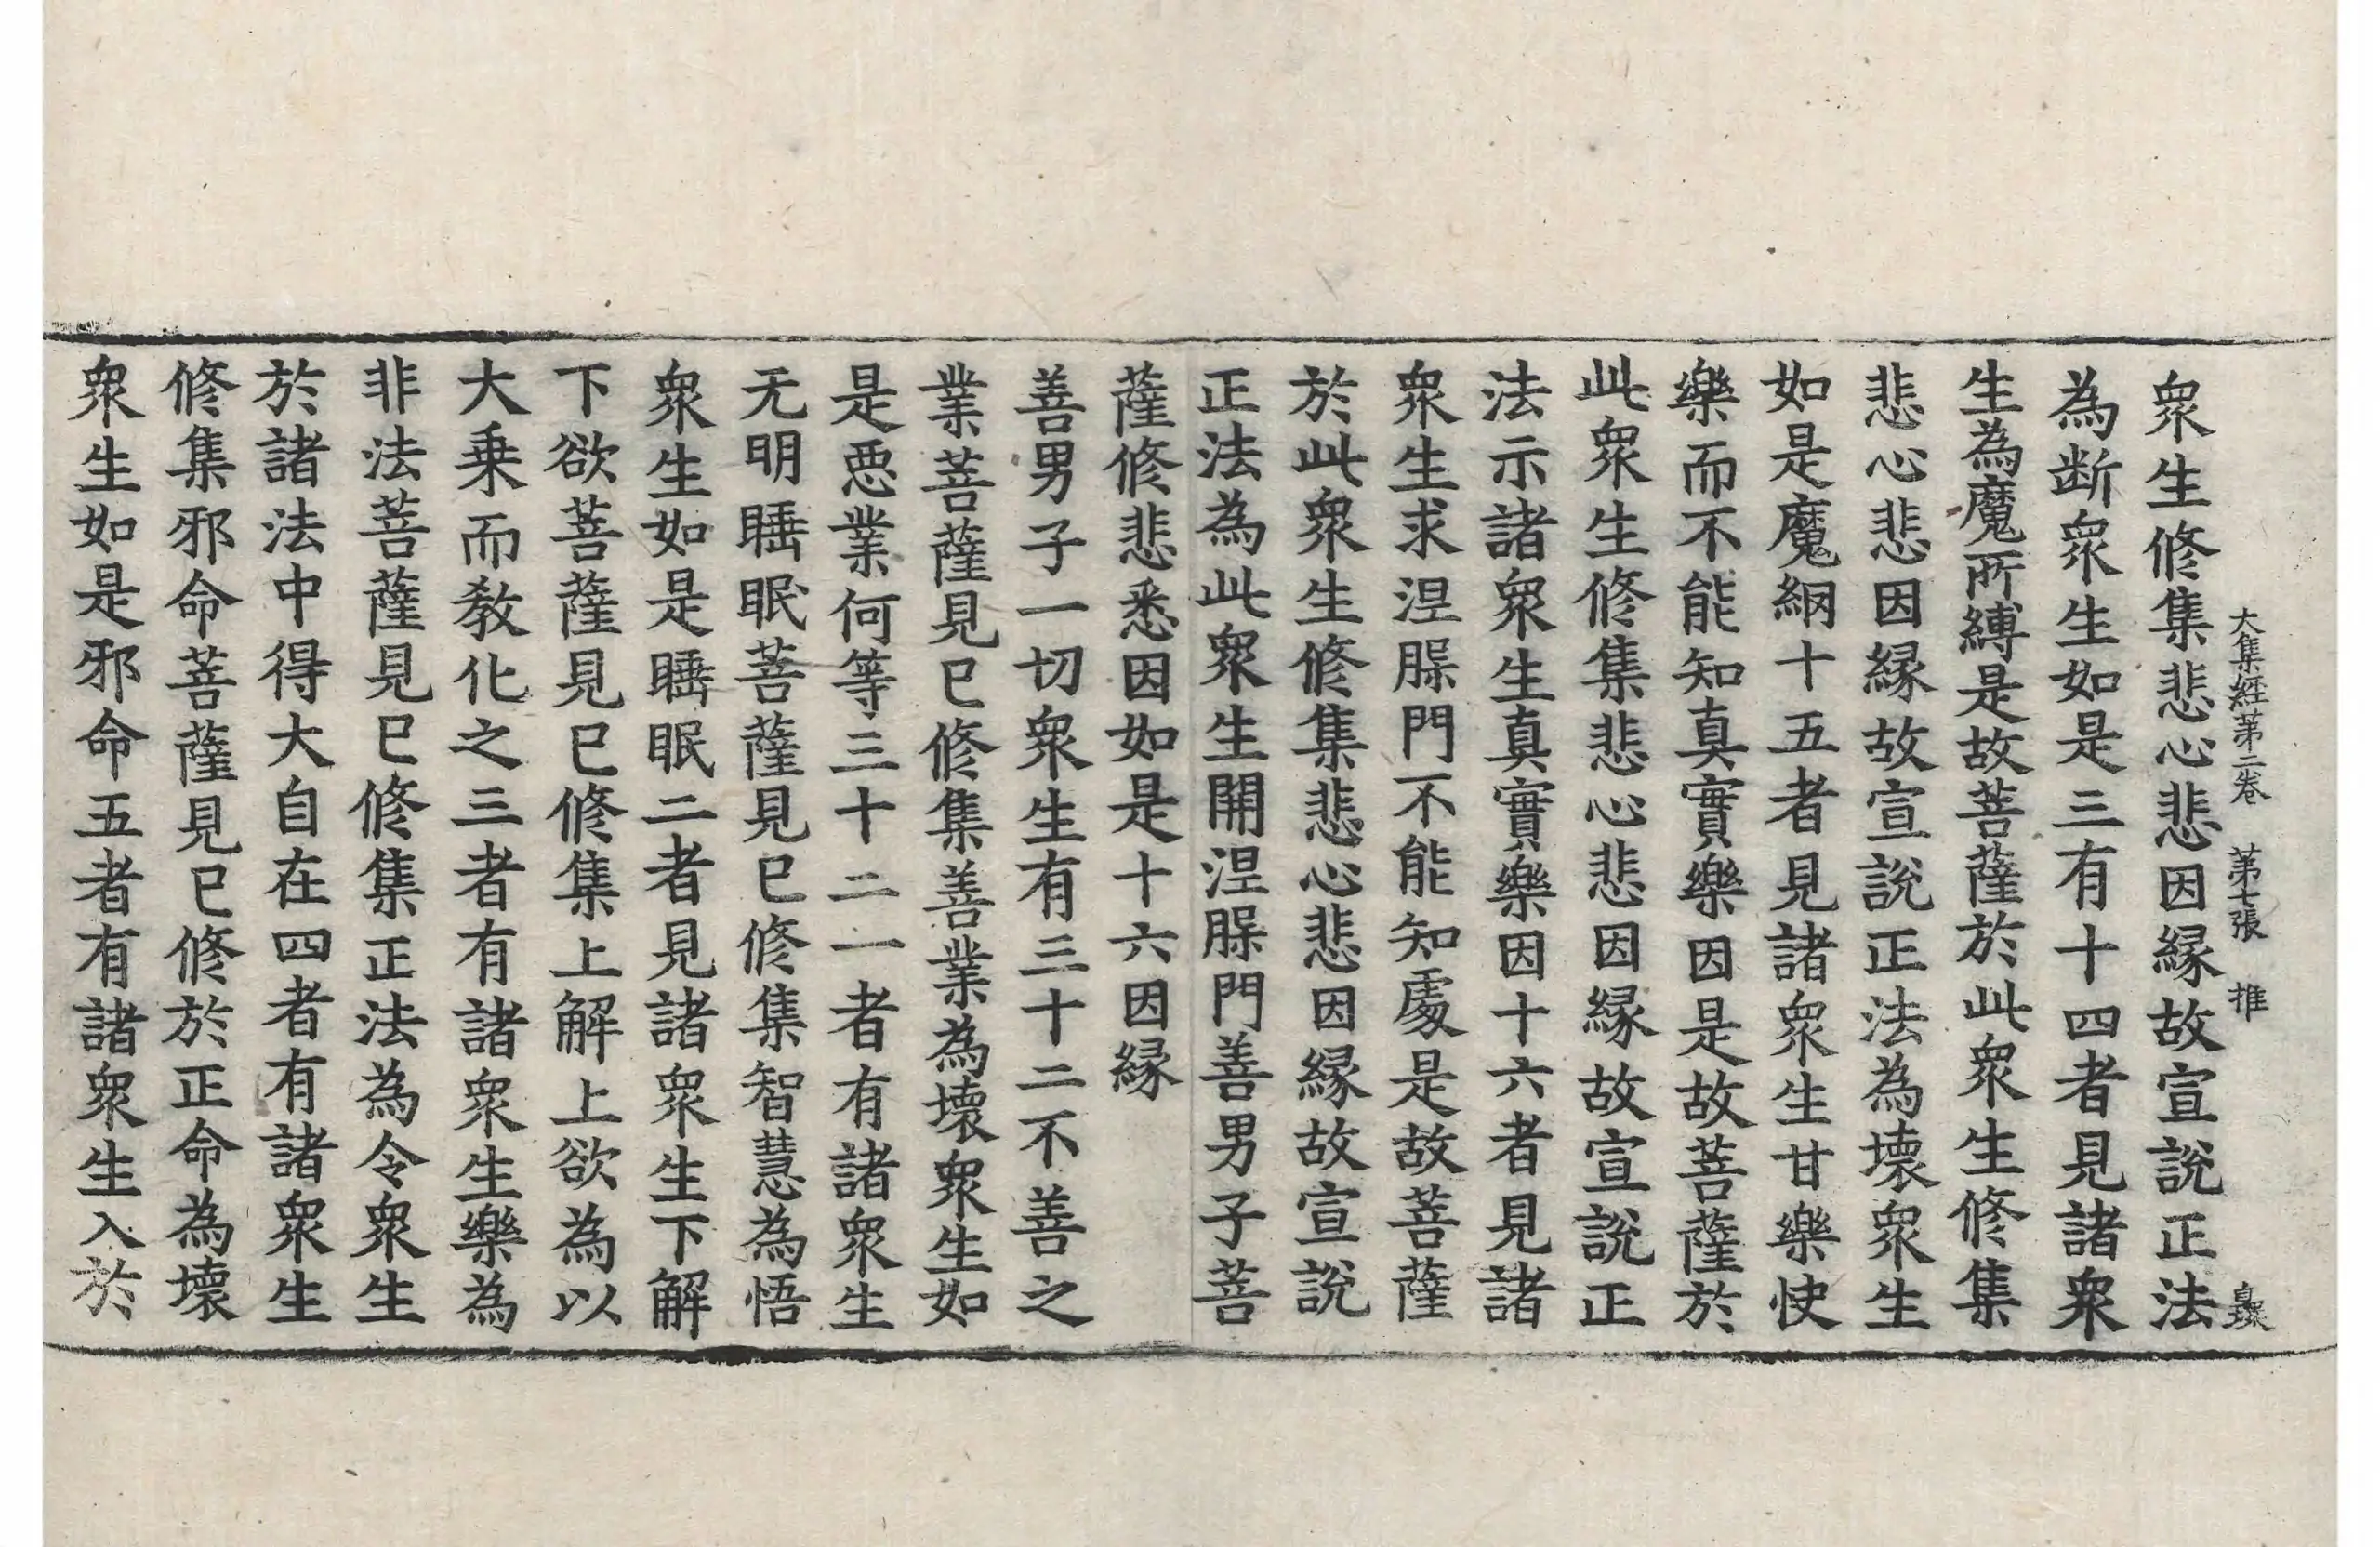 大集經第二卷 第七張 推
衆生修集悲心悲因縁故宣說正法
為断衆生如是三有十四者見諸衆
生為魔所縛是故菩薩於此衆生修集
悲心悲因縁故宣說正法為壞衆生
如是魔網十五者見諸衆生甘樂快
樂而不能知真實樂因是故菩薩於
此衆生修集悲心悲因縁故宣說正
法示諸衆生真實樂因十六者見諸
衆生求涅槃門不能知處是故菩薩
於此衆生修集悲心悲因縁故宣說
正法為此衆生開涅槃門善男子菩
薩修悲悉因如是十六因縁
善男子一切衆生有三十二不善之
業菩薩見已修集善業為壞衆生如
是惡業何等三十二一者有諸衆生
无明睡眠菩薩見已修集智慧為悟
衆生如是睡眠二者見諸衆生下解
下欲菩薩見已修集上解上欲為以
大乗而教化之三者有諸衆生樂為
非法菩薩見已修集正法為令衆生
於諸法中得大自在四者有諸衆生
修集邪命菩薩見已修於正命為壞
衆生如是邪命五者有諸衆生入於